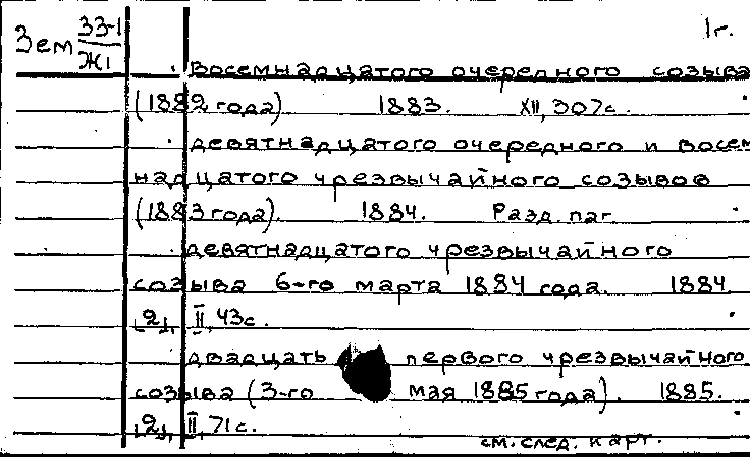 Зем 33-1
Ж1
1г.
. Восемнадцатого очередного созыва
(1882 года) 1883. XII, 307с.
. девятнадцатого очередного и восем
надцатого чрезвычайного созывов
(1883 года). 1884. Разд. паг.
. девятнадцатого чрезвычайного
созыва 6-го марта 1884 года. 1884.
[2], II, 43с.
двадцать первого чрезвычайного
созыва (3-го мая 1885 года). 1885.
[2], II, 71с.
см. след. карт.